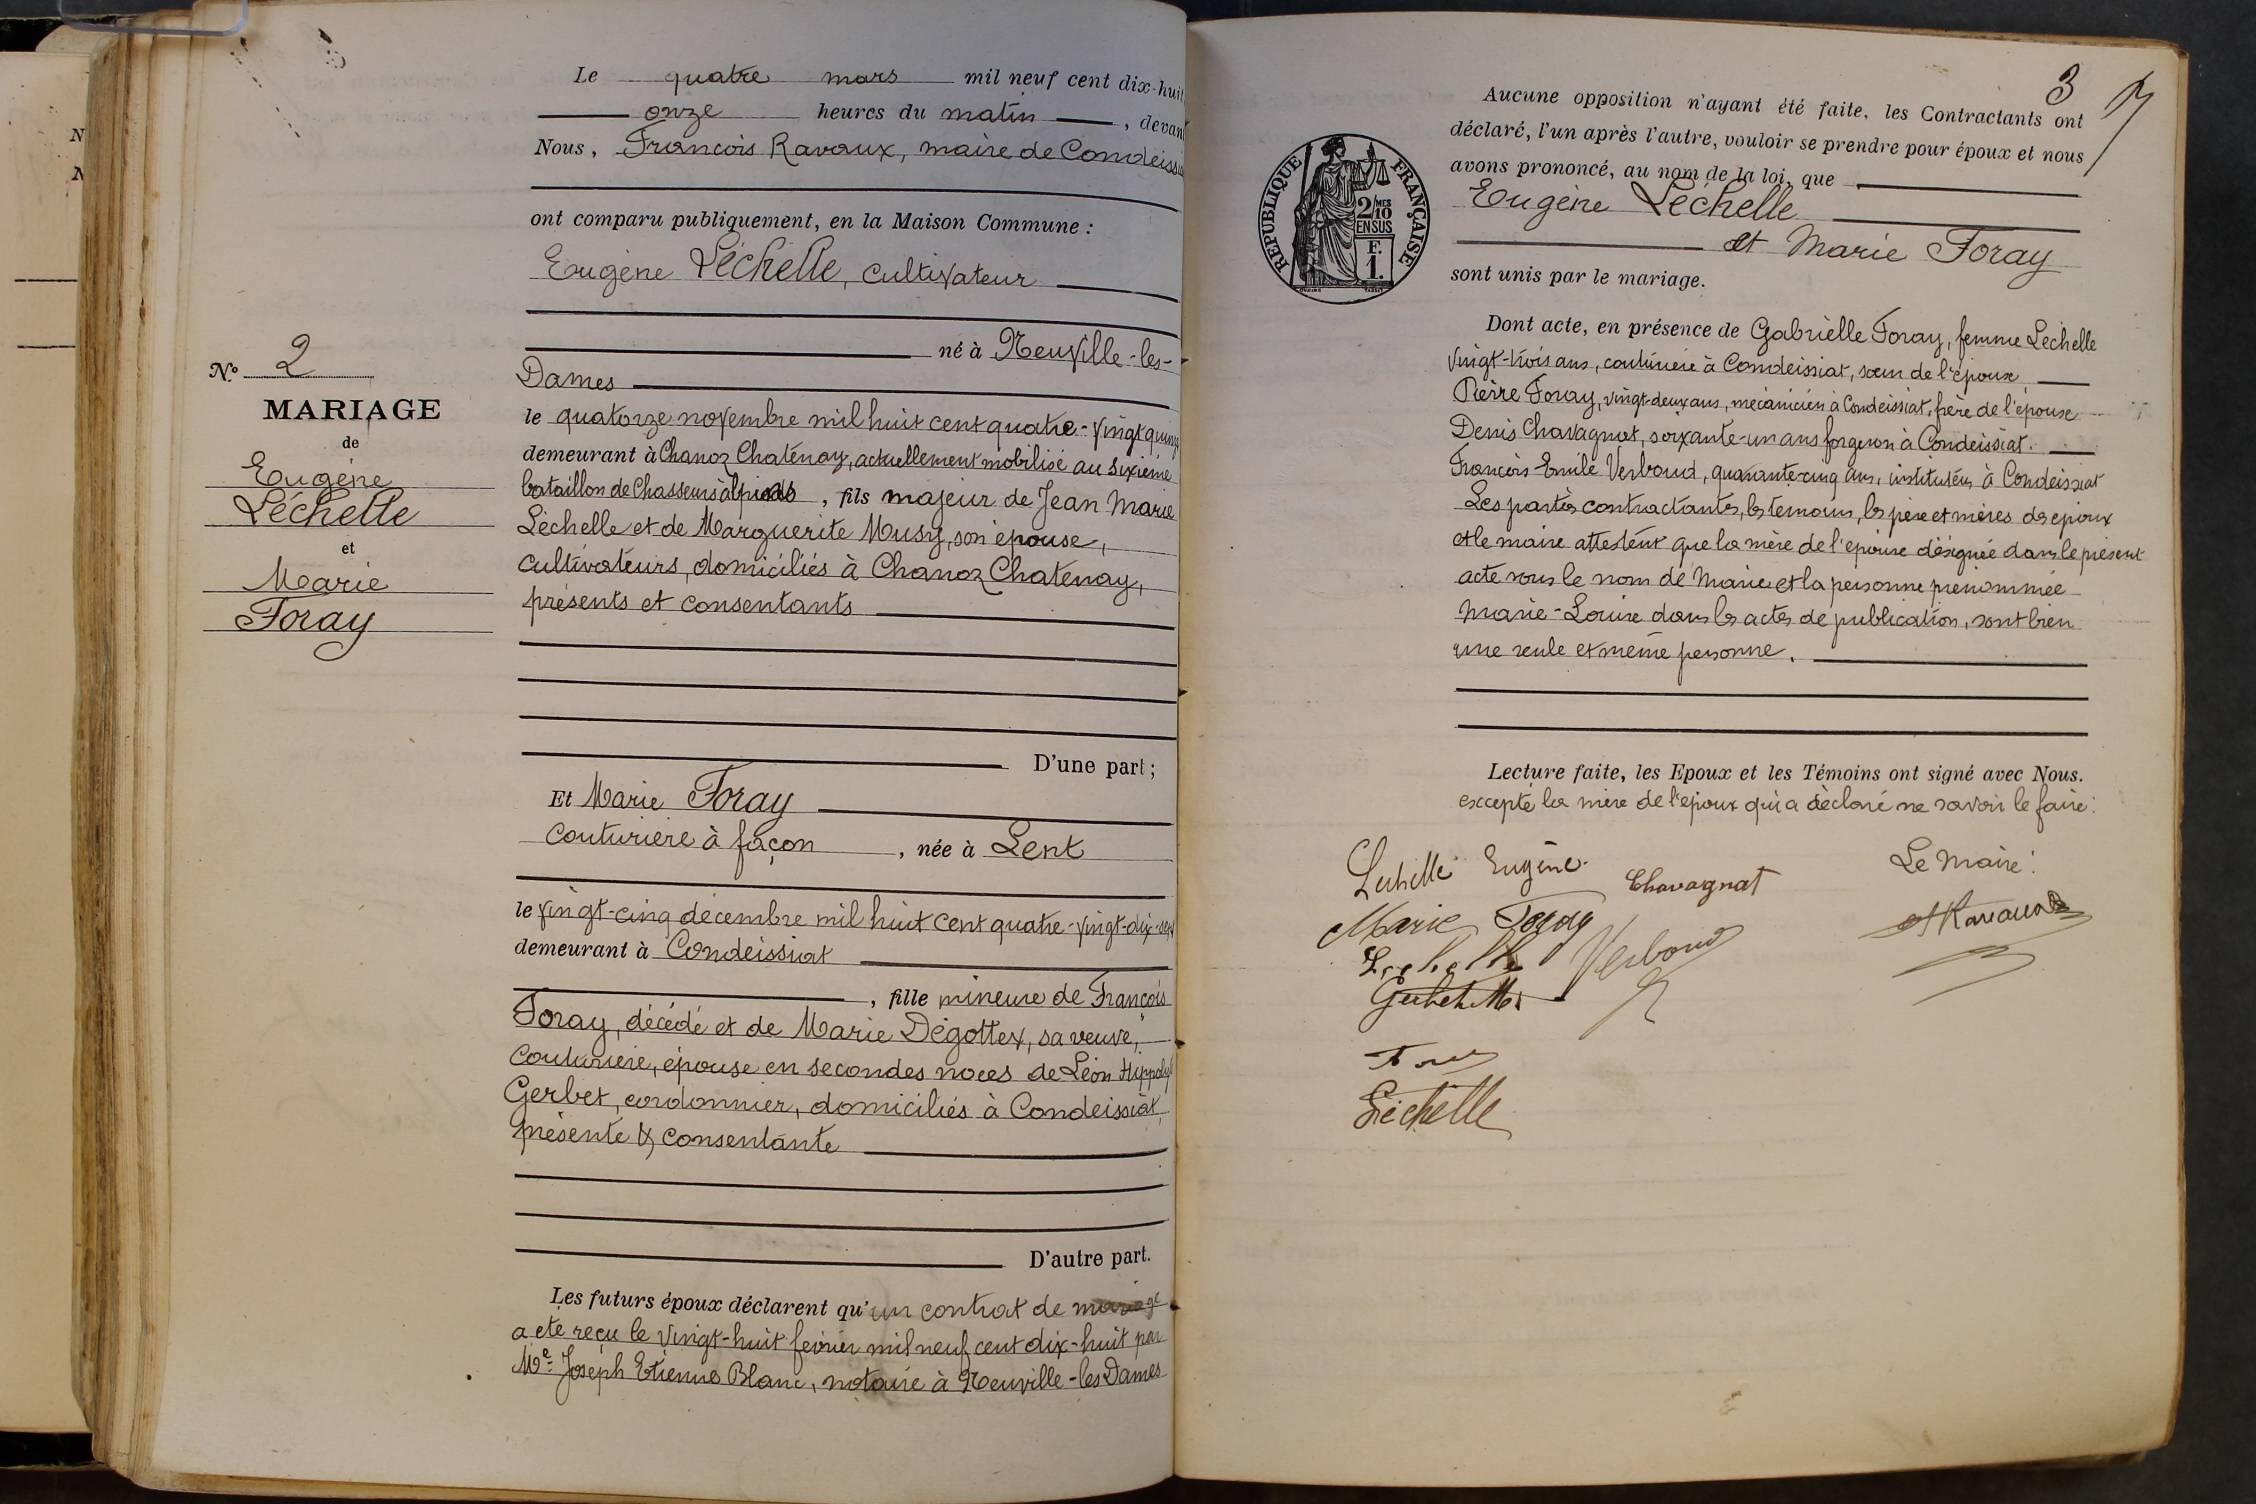 Le quatre mars mil neuf cent dix-huit
onze heures du matin, devant
Nous, François Ravaux, maire de Condeissiat
ont comparu publiquement, en la Maison Commune :
Eugène Léchelle, cultivateur
né à Neuville-les-
Dames
le quatorze novembre mil huit cent quatre-vingt quinze
demeurant à Chanoz Chatenay, actuellement mobilisé au sixième
bataillon de Chasseurs alpins, fils majeur de Jean Marie
Léchelle et de Marguerite Musy, son épouse,
cultivateurs, domiciliés à Chanoz Chatenay,
présents et consentants
D'une part ;
N° 2
MARIAGE
de
Eugène
Léchelle
et
Marie
Foray
Et Marie Foray
couturière à façon, née à Lent
le vingt-cinq décembre mil huit cent quatre-vingt-dix-sept
demeurant à Condeissiat
, fille mineure de François
Foray, décédé et de Marie Dégottex, sa veuve,
couturière, épouse en secondes noces de Léon Hippolyte
Gerbet, cordonnier, domiciliés à Condeissiat,
présente & consentante
D'autre part.
Les futurs époux déclarent qu'un contrat de mariage
a été reçu le vingt-huit février mil neuf cent dix-huit par
Me Joseph Etienne Blanc, notaire à Neuville-les Dames
3
Aucune opposition n'ayant été faite, les Contractants ont
déclaré, l'un après l'autre, vouloir se prendre pour époux et nous
avons prononcé, au nom de la loi, que
Eugène Léchelle
et Marie Foray
sont unis par le mariage.
REPUBLIQUE FRANÇAISE
2/10 MES
EN SUS
F.
1.
Dont acte, en présence de Gabrielle Foray, femme Léchelle
vingt-trois ans, couturière à Condeissiat, sœur de l'époux
Pierre Foray, vingt-deux ans, mécanicien à Condeissiat, frère de l'épouse
Denis Chavagnat, soixante-un ans forgeron à Condeissiat.
François Emile Verbaud, quarante-cinq ans, instituteur à Condeissiat
Les parties contractantes, les témoins, les père et mères des époux
et le maire attestent que la mère de l'épouse désignée dans le présent
acte sous le nom de Marie et la personne prénommée
Marie-Louise dans les actes de publication, sont bien
une seule et même personne.
Lecture faite, les Epoux et les Témoins ont signé avec Nous.
excepté la mère de l'époux qui a déclaré ne savoir le faire.
Léchelle Eugène
Chavagnat
Le Maire :
Marie Foray
Ravaux
Léchelle
Verbaud
Foray
Léchelle